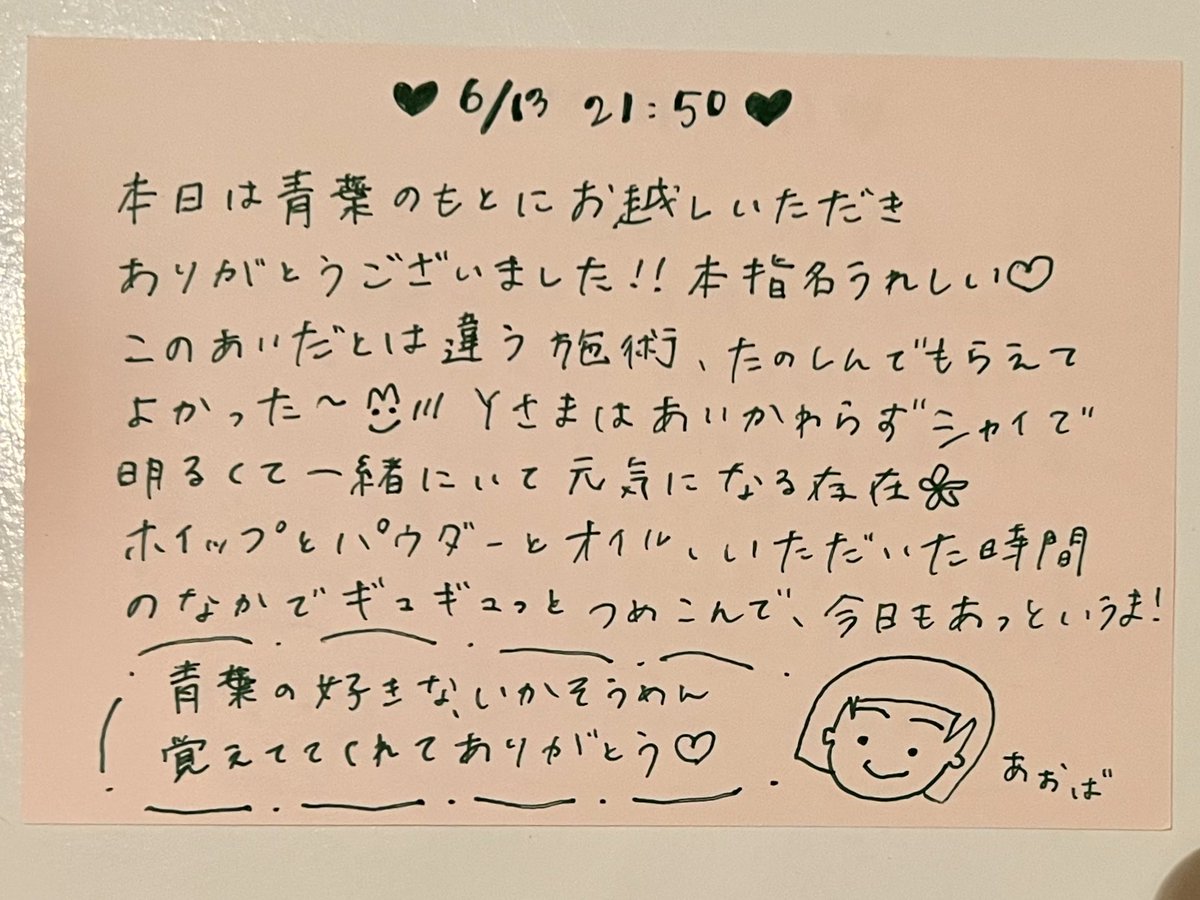 ♥ 6/13 21:50 ♥
本日は青葉のもとにお越しいただき
ありがとうございました!!本指名うれしい♡
このあいだとは違う施術、たのしんでもらえて
よかった〜 Yさまはあいかわらずシャイで
明るくて一緒にいて元気になる存在
ホイップとパウダーとオイル、いただいた時間
のなかでギュギュっとつめこんで、今日もあっというま!
青葉の好きな、いかそうめん
覚えててくれてありがとう♡
あおば